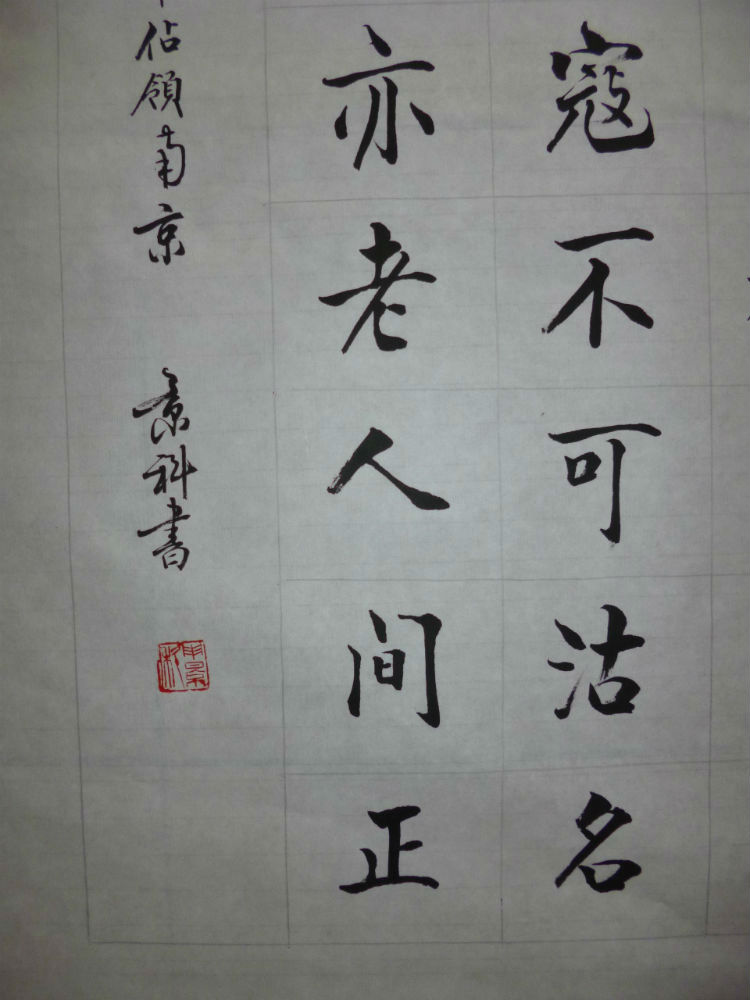 寇不可沽名
亦老人间正
佔領南京
景科書